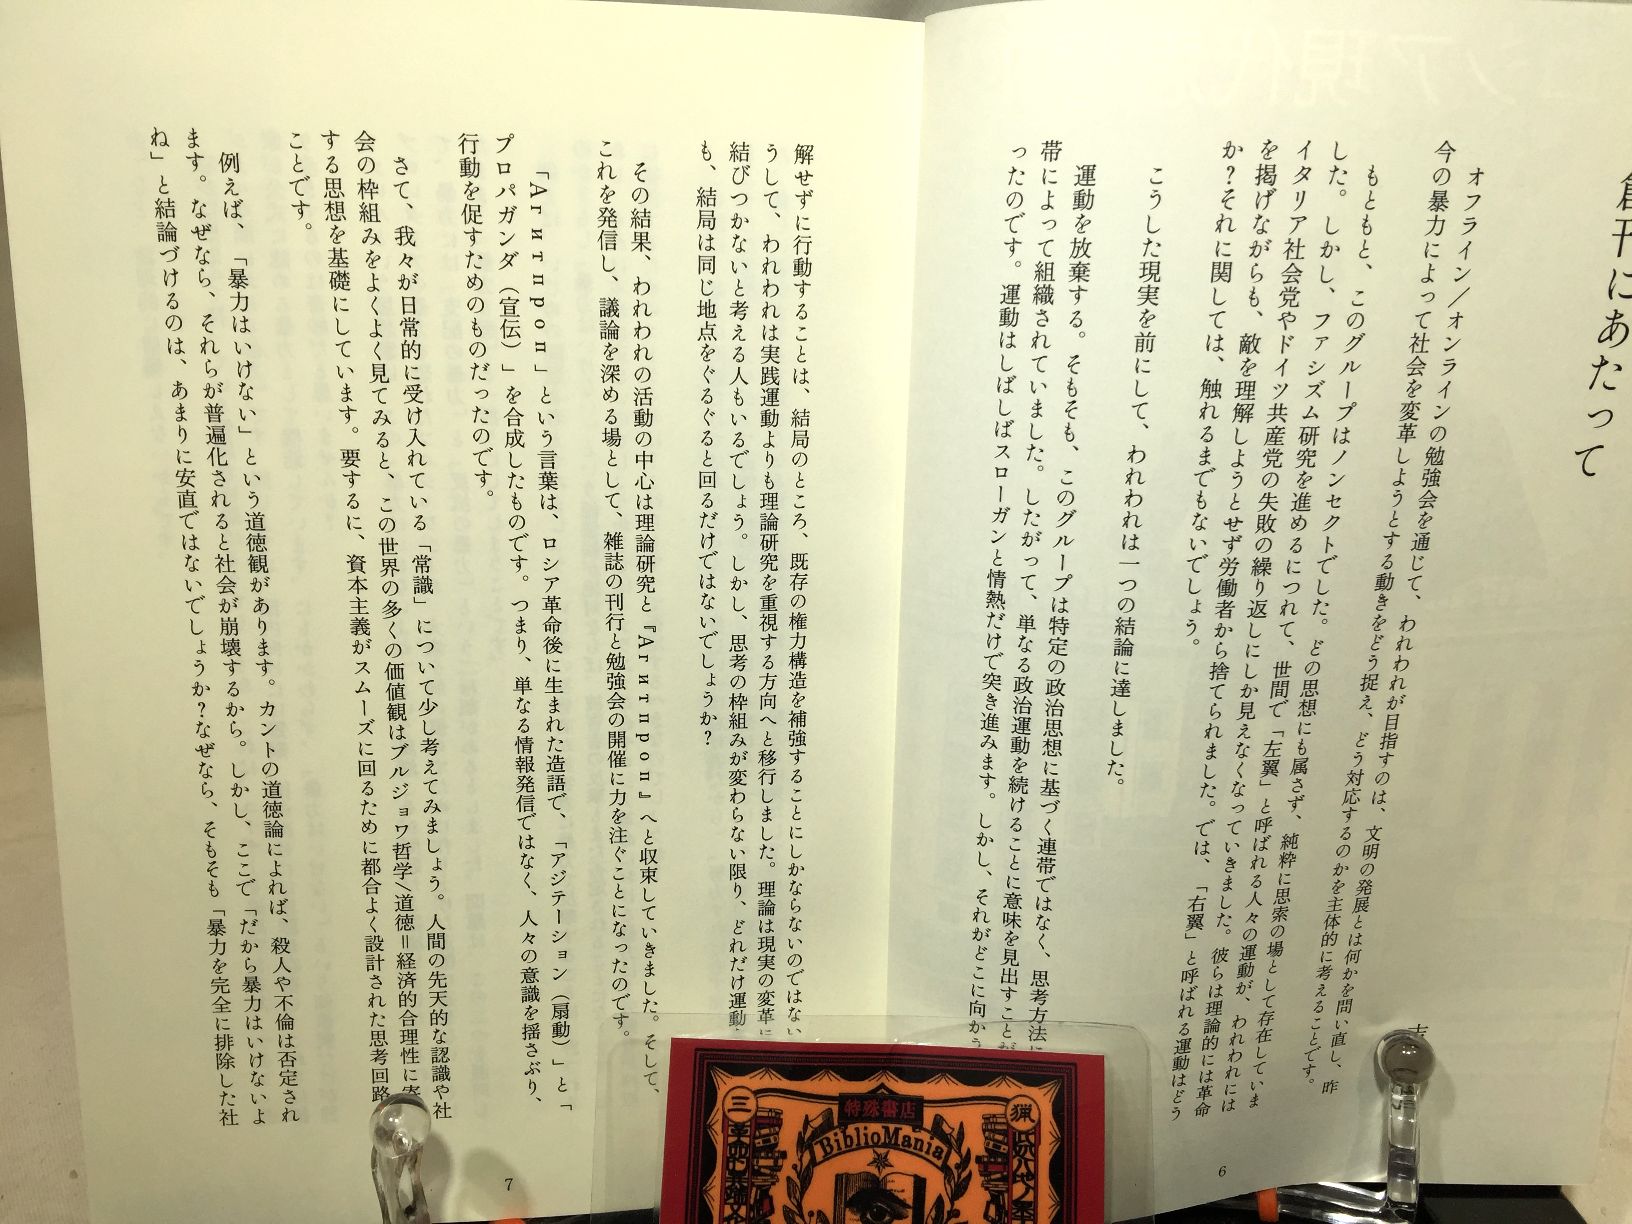 創刊にあたって
オフライン／オンラインの勉強会を通じて、われわれが目指すのは、文明の発展とは何かを問い直し、昨
今の暴力によって社会を変革しようとする動きをどう捉え、どう対応するのかを主体的に考えることです。
もともと、このグループはノンセクトでした。どの思想にも属さず、純粋に思索の場として存在していま
した。しかし、ファシズム研究を進めるにつれて、世間で「左翼」と呼ばれる人々の運動が、われわれには
イタリア社会党やドイツ共産党の失敗の繰り返しにしか見えなくなっていきました。彼らは理論的には革命
を掲げながらも、敵を理解しようとせず労働者から捨てられました。では、「右翼」と呼ばれる運動はどう
か？それに関しては、触れるまでもないでしょう。
こうした現実を前にして、われわれは一つの結論に達しました。
運動を放棄する。そもそも、このグループは特定の政治思想に基づく連帯ではなく、思考方法に
帯によって組織されていました。したがって、単なる政治運動を続けることに意味を見出すことが
ったのです。運動はしばしばスローガンと情熱だけで突き進みます。しかし、それがどこに向かう
6
解せずに行動することは、結局のところ、既存の権力構造を補強することにしかならないのではない
うして、われわれは実践運動よりも理論研究を重視する方向へと移行しました。理論は現実の変革に
結びつかないと考える人もいるでしょう。しかし、思考の枠組みが変わらない限り、どれだけ運動
も、結局は同じ地点をぐるぐると回るだけではないでしょうか？
その結果、われわれの活動の中心は理論研究と『Агитпроп』へと収束していきました。そして、
これを発信し、議論を深める場として、雑誌の刊行と勉強会の開催に力を注ぐことになったのです。
「Агитпроп」という言葉は、ロシア革命後に生まれた造語で、「アジテーション（扇動）」と「
プロパガンダ（宣伝）」を合成したものです。つまり、単なる情報発信ではなく、人々の意識を揺さぶり、
行動を促すためのものだったのです。
さて、我々が日常的に受け入れている「常識」について少し考えてみましょう。人間の先天的な認識や社
会の枠組みをよくよく見てみると、この世界の多くの価値観はブルジョワ哲学／道徳＝経済的合理性に寄
する思想を基礎にしています。要するに、資本主義がスムーズに回るために都合よく設計された思考回路
ことです。
例えば、「暴力はいけない」という道徳観があります。カントの道徳論によれば、殺人や不倫は否定され
ます。なぜなら、それらが普遍化されると社会が崩壊するから。しかし、ここで「だから暴力はいけないよ
ね」と結論づけるのは、あまりに安直ではないでしょうか？なぜなら、そもそも「暴力を完全に排除した社
7
特殊書店
BiblioMania
三
猟